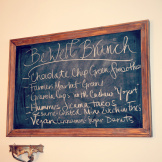 Be Well Brunch
- Chocolate Chip Green Smoothie
- Farmers Market Granola
Granola Cups with Cashew Yogurt
- Hummus Jicama Tacos
- Sesame Crusted Mini Zucchini Bites
- Vegan Cinnamon Sugar Donuts